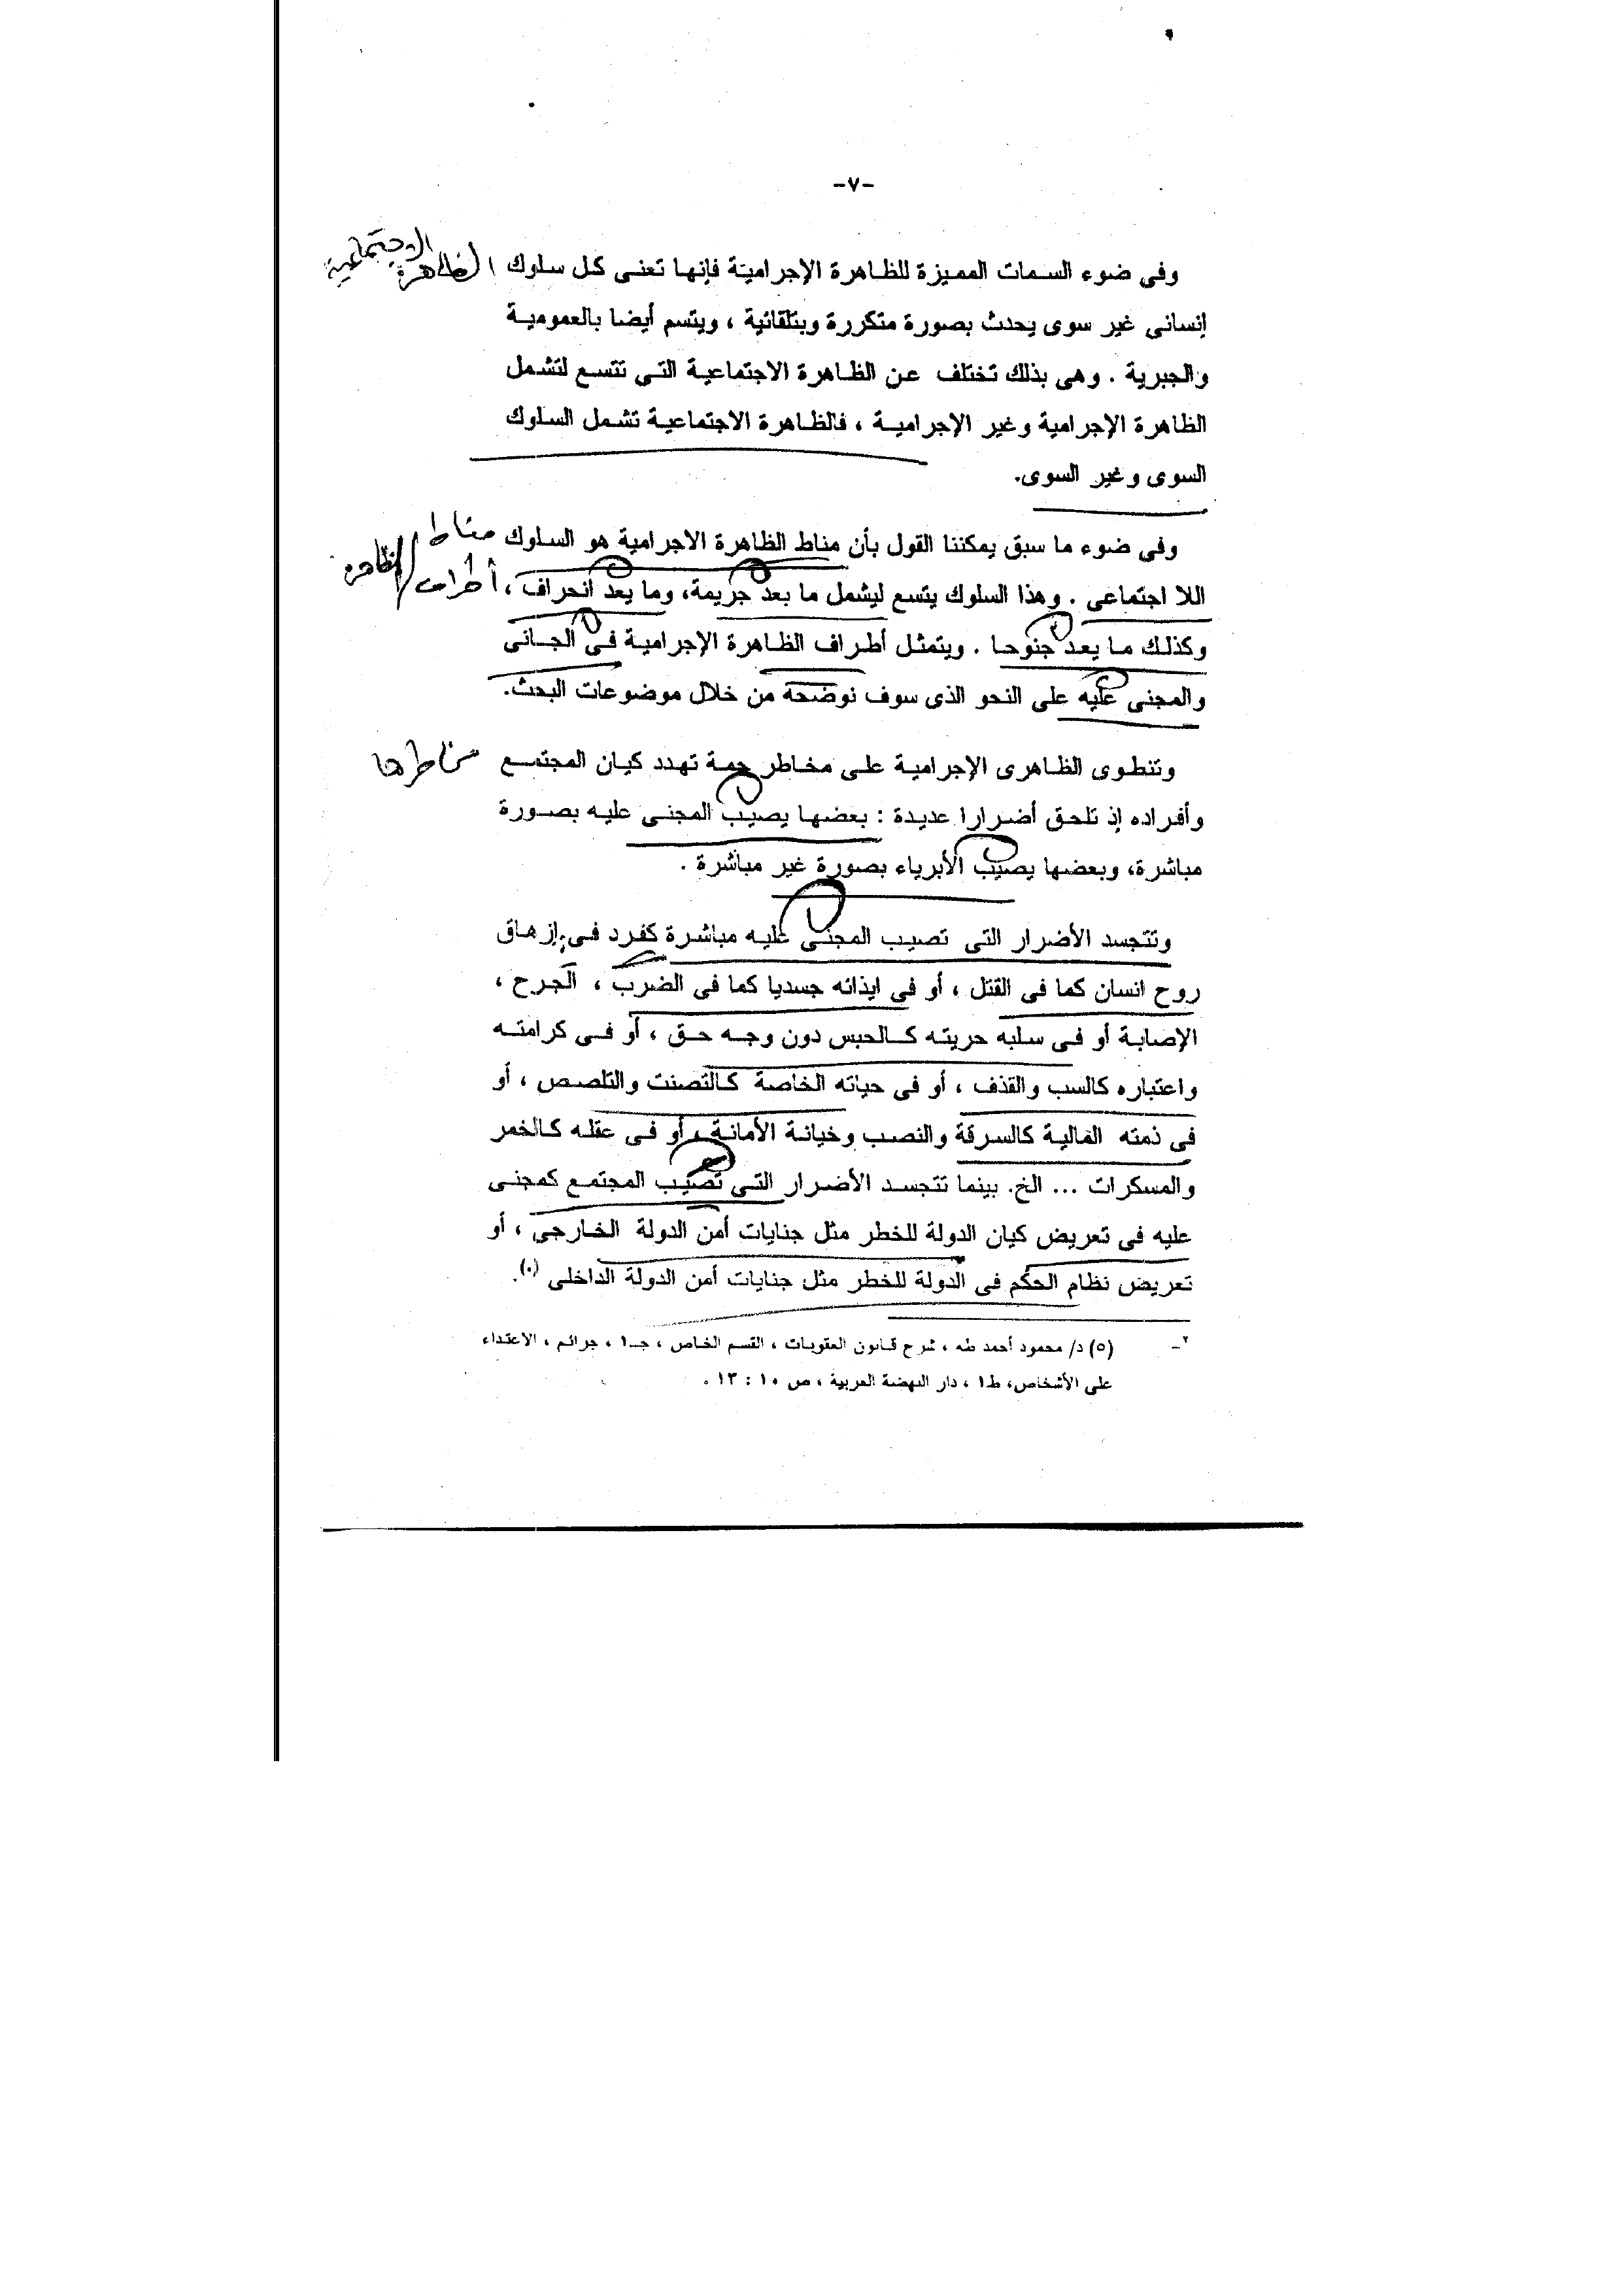 -٧-
الظاهرة الاجتماعية
وفى ضوء السمات المميزة للظاهرة الإجرامية فإنها تعنى كل سلوك
إنسانى غير سوى يحدث بصورة متكررة وبتلقائية ، ويتسم أيضا بالعمومية
والجبرية . وهى بذلك تختلف عن الظاهرة الاجتماعية التى تتسع لتشمل
الظاهرة الإجرامية وغير الإجرامية ، فالظاهرة الاجتماعية تشمل السلوك
السوى وغير السوى.
مناط
وفى ضوء ما سبق يمكننا القول بأن مناط الظاهرة الاجرامية هو السلوك
أطراف الظاهرة
اللا اجتماعى . وهذا السلوك يتسع ليشمل ما يعد جريمة، وما يعد انحراف ،
وكذلك ما يعد جنوحا . ويتمثل أطراف الظاهرة الإجرامية فى الجانى
والمجنى عليه على النحو الذى سوف نوضحه من خلال موضوعات البحث.
مخاطرها
وتنطوى الظاهرى الإجرامية على مخاطر جمة تهدد كيان المجتمع
وأفراده إذ تلحق أضرارا عديدة : بعضها يصيب المجنى عليه بصورة
مباشرة، وبعضها يصيب الأبرياء بصورة غير مباشرة .
وتتجسد الأضرار التى تصيب المجنى عليه مباشرة كفرد فى إزهاق
روح انسان كما فى القتل ، أو فى ايذائه جسديا كما فى الضرب ، الجرح ،
الإصابة أو فى سلبه حريته كالحبس دون وجه حق ، أو فى كرامته
واعتباره كالسب والقذف ، أو فى حياته الخاصة كالتصنت والتلصص ، أو
فى ذمته المالية كالسرقة والنصب وخيانة الأمانة ، أو فى عقله كالخمر
والمسكرات ... الخ. بينما تتجسد الأضرار التى تصيب المجتمع كمجنى
عليه فى تعريض كيان الدولة للخطر مثل جنايات أمن الدولة الخارجى ، أو
تعريض نظام الحكم فى الدولة للخطر مثل جنايات أمن الدولة الداخلى (٥).
٢- (٥) د/ محمود أحمد طه ، شرح قانون العقوبات ، القسم الخاص ، جـ١ ، جرائم ، الاعتداء
على الأشخاص، ط١ ، دار النهضة العربية ، ص ١٠ : ١٣ .